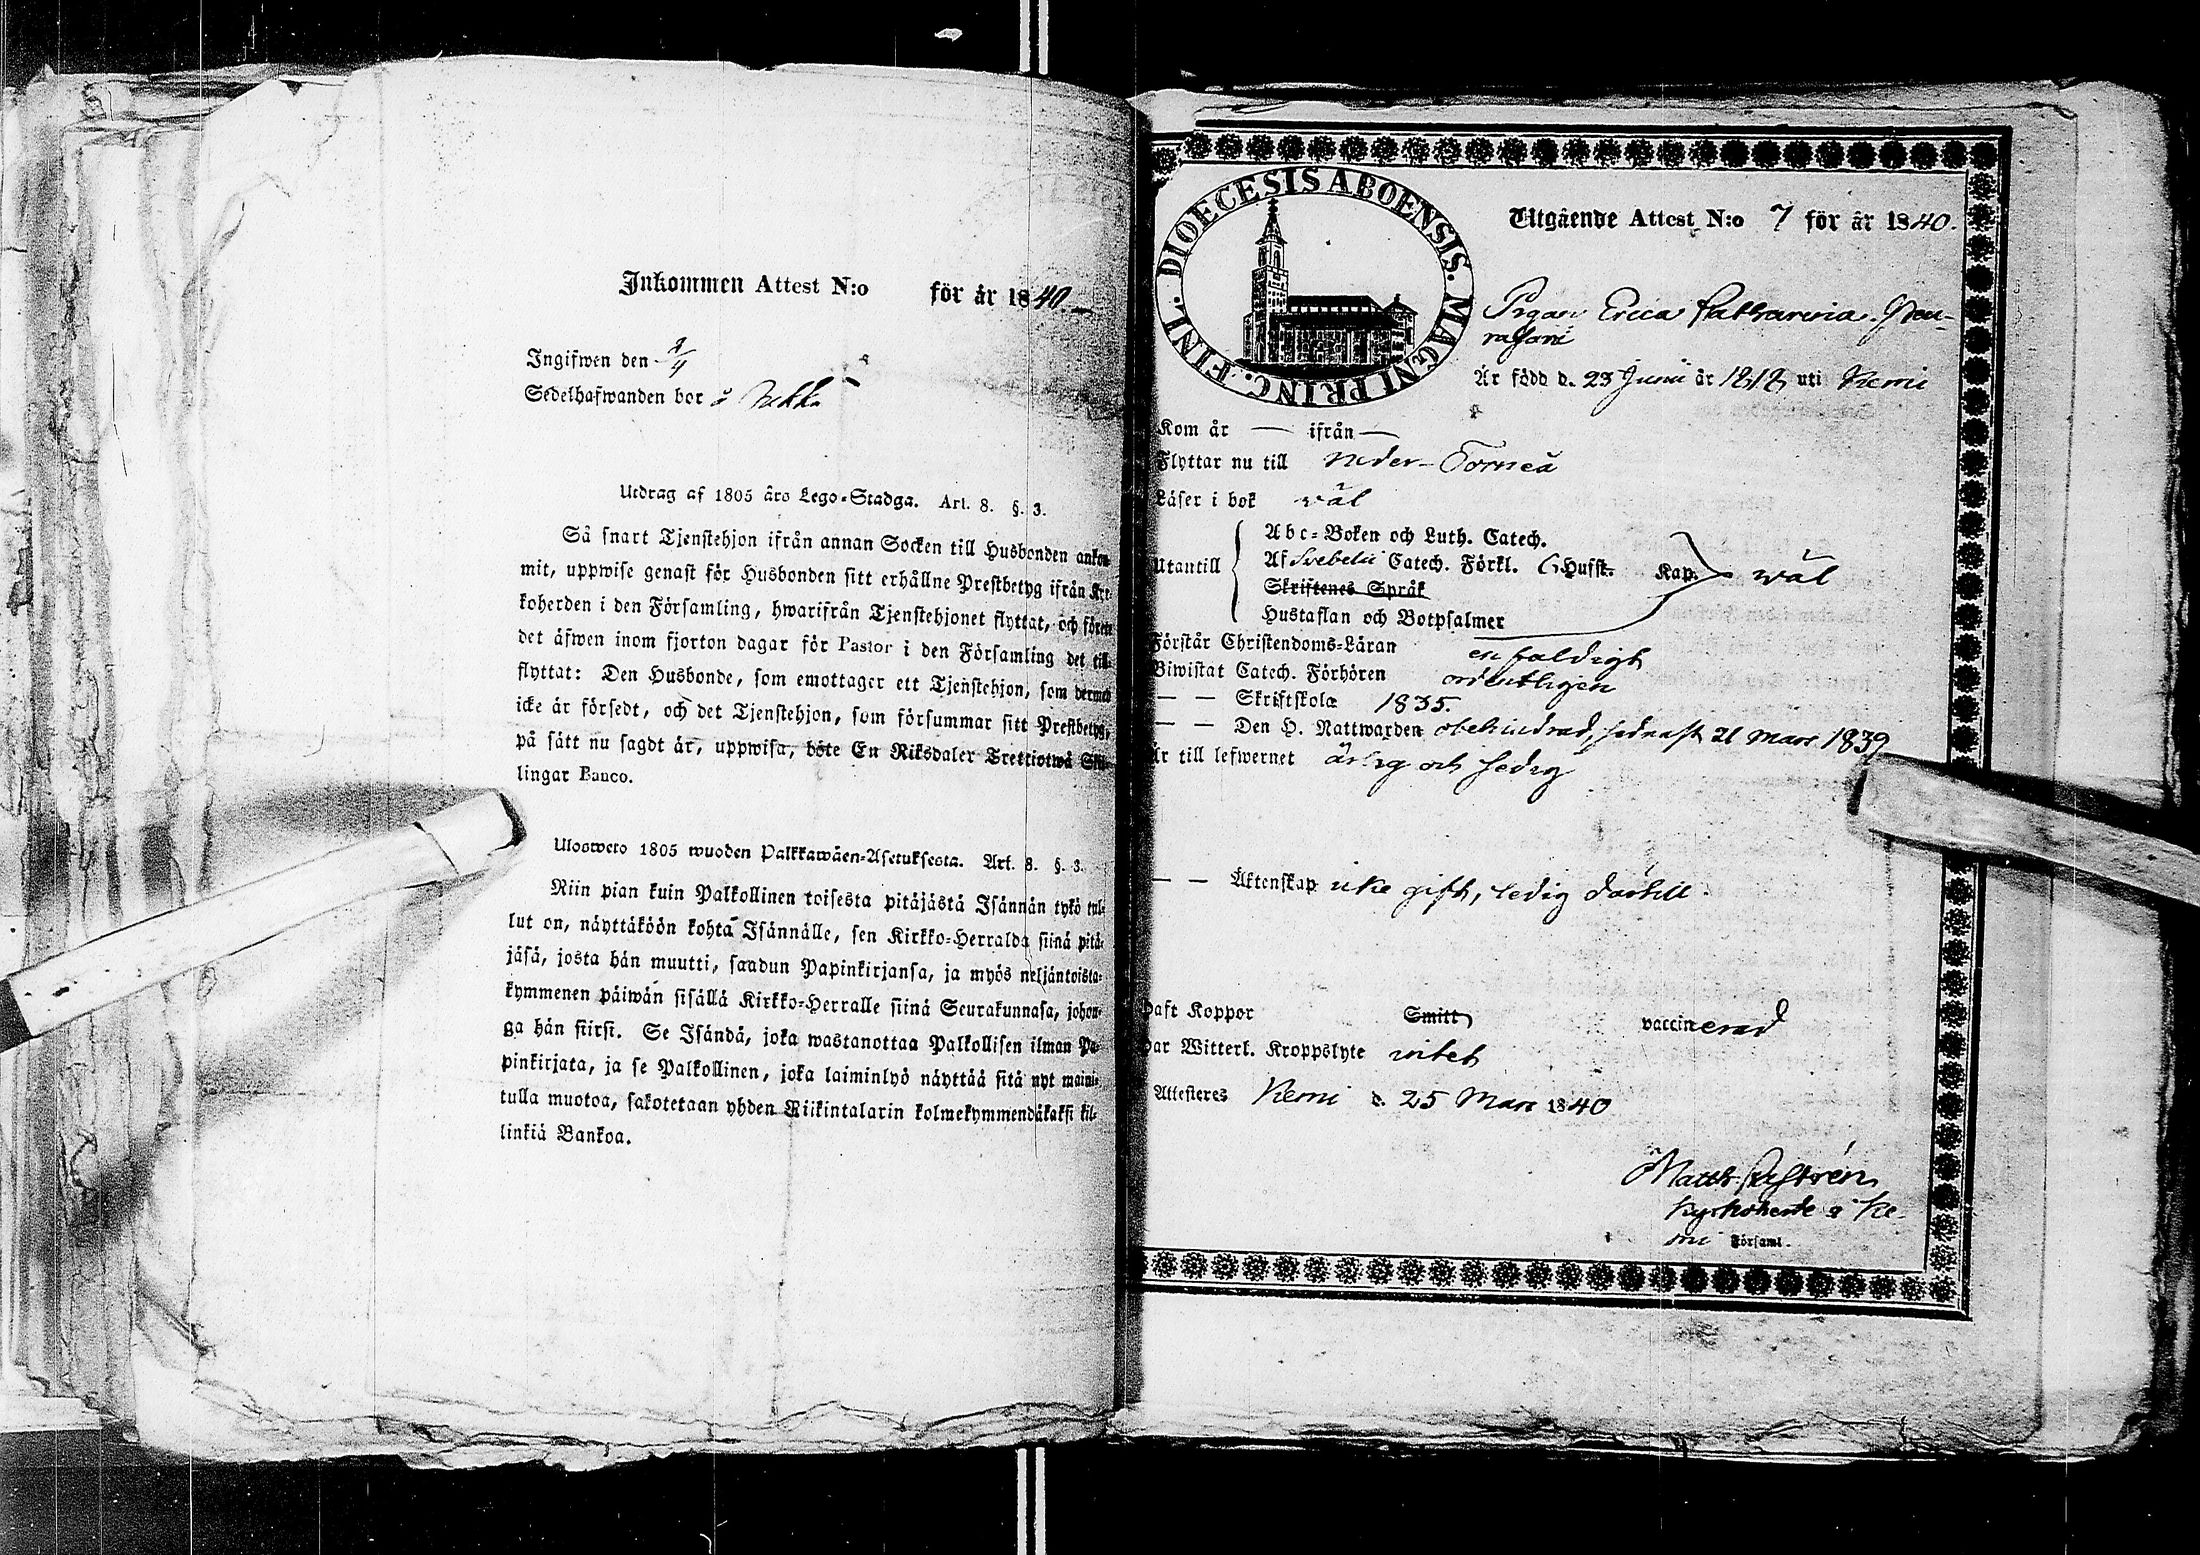 Inkommen Attest N:o för år 1840.
Ingifwen den /4
Sedelhafwanden bor i
Utdrag af 1805 års Lego-Stadga. Art. 8. §. 3.
Så snart Tjenstehjon ifrån annan Socken till Husbonden ankom-
mit, uppwise genast för Husbonden sitt erhållne Prestbetyg ifrån Kyr-
koherden i den Församling, hwarifrån Tjenstehjonet flyttat, och förete
det äfwen inom fjorton dagar för Pastor i den Församling det till-
flyttat: Den Husbonde, som emottager ett Tjenstehjon, som dermed
icke är försedt, och det Tjenstehjon, som försummar sitt Prestbetyg,
på sätt nu sagdt är, uppwisa, böte En Riksdaler Trettiotwå Skil-
lingar Banco.
Ulosweto 1805 wuoden Palkkawäen-Asetuksesta. Art. 8. §. 3.
Niin pian kuin Palkollinen toisesta pitäjästä Isännän tykö tul-
lut on, näyttäköön kohta Isännälle, sen Kirkko-Herralda siinä pitä-
jäsä, josta hän muutti, saadun Papinkirjansa, ja myös neljäntoista-
kymmenen päiwän sisällä Kirkko-Herralle siinä Seurakunnasa, johon-
ga hän siirsi. Se Isändä, joka wastanottaa Palkollisen ilman Pa-
pinkirjata, ja se Palkollinen, joka laiminlyö näyttää sitä nyt maini-
tulla muotoa, sakotetaan yhden Riikintalarin kolmekymmendäkaksi kil-
linkiä Bankoa.
DIOECESIS ABOENSIS. MAGNI PRINC. FINL.
Utgående Attest N:o 7 för år 1840.
Pigan Erica Catharina
Är född d. 23 Junii år 1818 uti Kemi
Kom år — ifrån —
Flyttar nu till Neder-Torneå
Läser i bok wäl
Utantill
Abc-Boken och Luth. Catech.
Af Svebelii Catech. Förkl. 6 Hufst. Kap. wäl
Skriftenes Språk
Hustaflan och Botpsalmer
Förstår Christendoms-Läran enfaldigt
Biwistat Catech. Förhören ordentligen
— — Skriftskola 1835.
— — Den H. Nattwarden obehindrad, sednast 21 Mars 1839
Är till lefwernet ärlig och sedig
— — Äktenskap icke gift, ledig dertill.
Haft Koppor Smitt vaccinerad
Har Witterl. Kroppslyte intet
Attesteres Kemi d. 25 Mars 1840
Matth. Castrén
Kyrkoherde i Ke-
mi Församl.